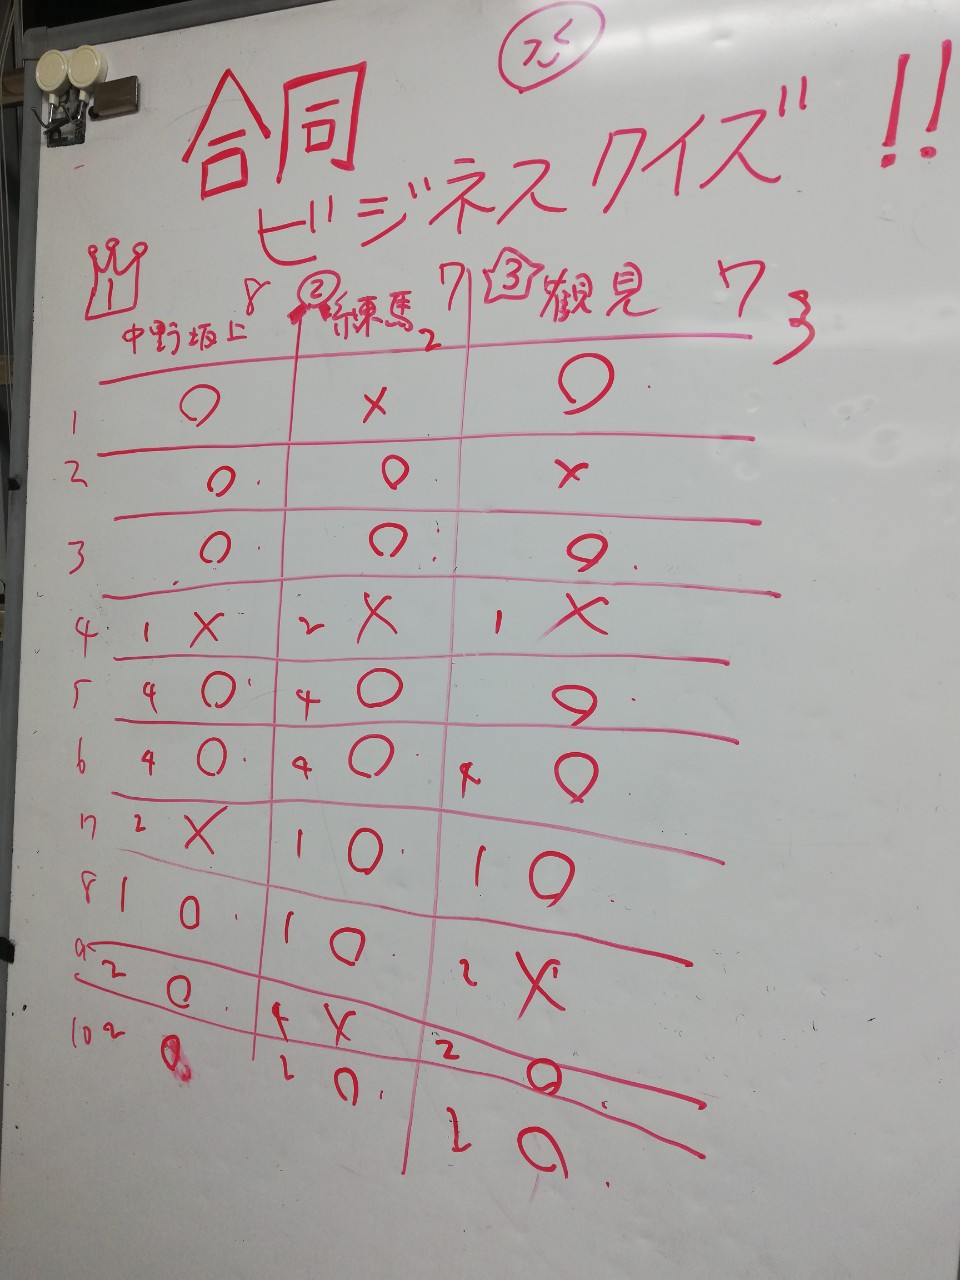 合同
ビジネスクイズ!!
1 8 ② 7 3 観見 7 3
中野坂上 練馬 2
1 ○ × ○
2 ○ ○ ×
3 ○ ○ ○
4 1 × 2 × 1 ×
5 4 ○ 4 ○ ○
6 4 ○ 4 ○ 4 ○
7 2 × 1 ○ 1 ○
8 1 ○ 1 ○ 2 ×
9 2 ○ 4 × 2 ○
10 2 ○ 2 ○ 2 ○